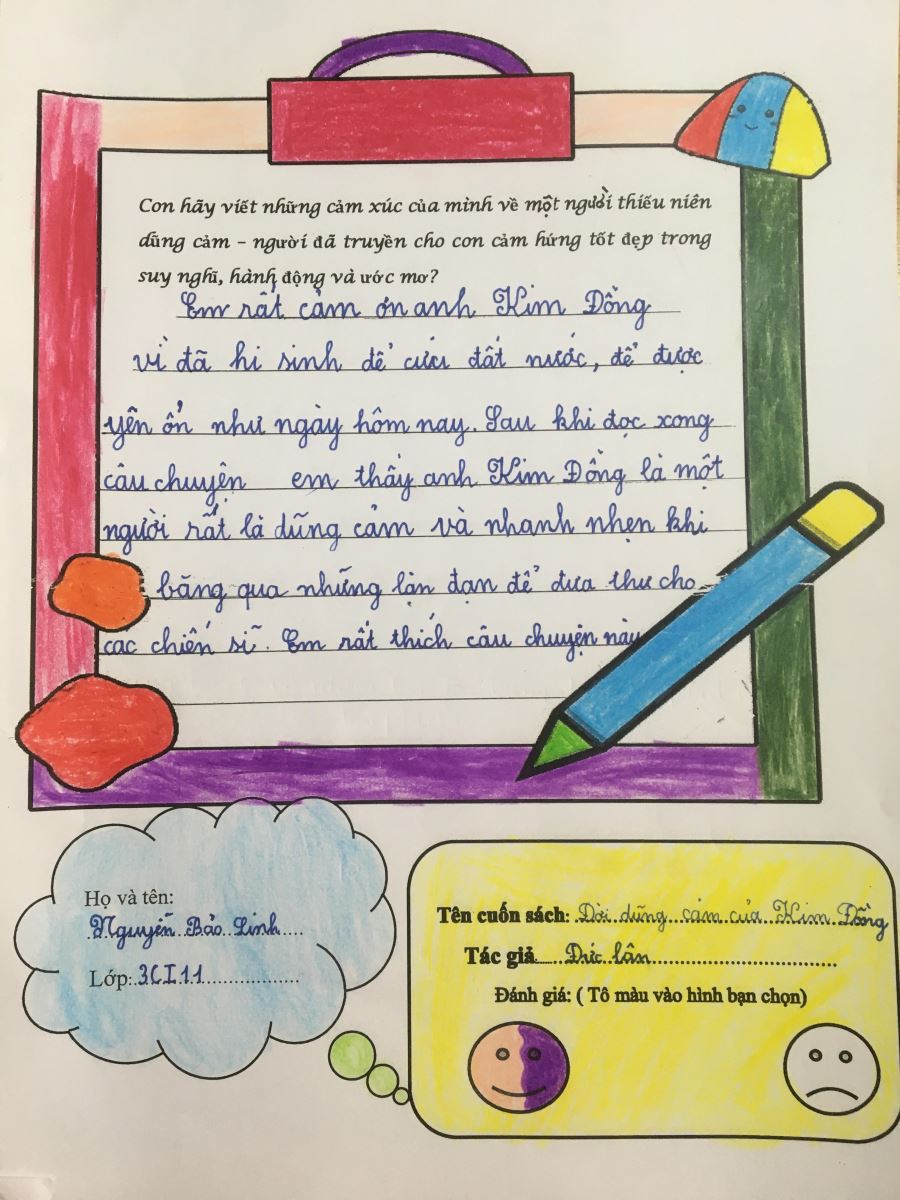 Con hãy viết những cảm xúc của mình về một người thiếu niên
dũng cảm - người đã truyền cho con cảm hứng tốt đẹp trong
suy nghĩ, hành động và ước mơ?
Em rất cảm ơn anh Kim Đồng
vì đã hi sinh để cứu đất nước, để được
yên ổn như ngày hôm nay. Sau khi đọc xong
câu chuyện em thấy anh Kim Đồng là một
người rất là dũng cảm và nhanh nhẹn khi
băng qua những làn đạn để đưa thư cho
các chiến sĩ. Em rất thích câu chuyện này
Họ và tên:
Nguyễn Bảo Linh
Lớp: 3CI11
Tên cuốn sách: Đời dũng cảm của Kim Đồng
Tác giả Đức lân
Đánh giá: ( Tô màu vào hình bạn chọn)